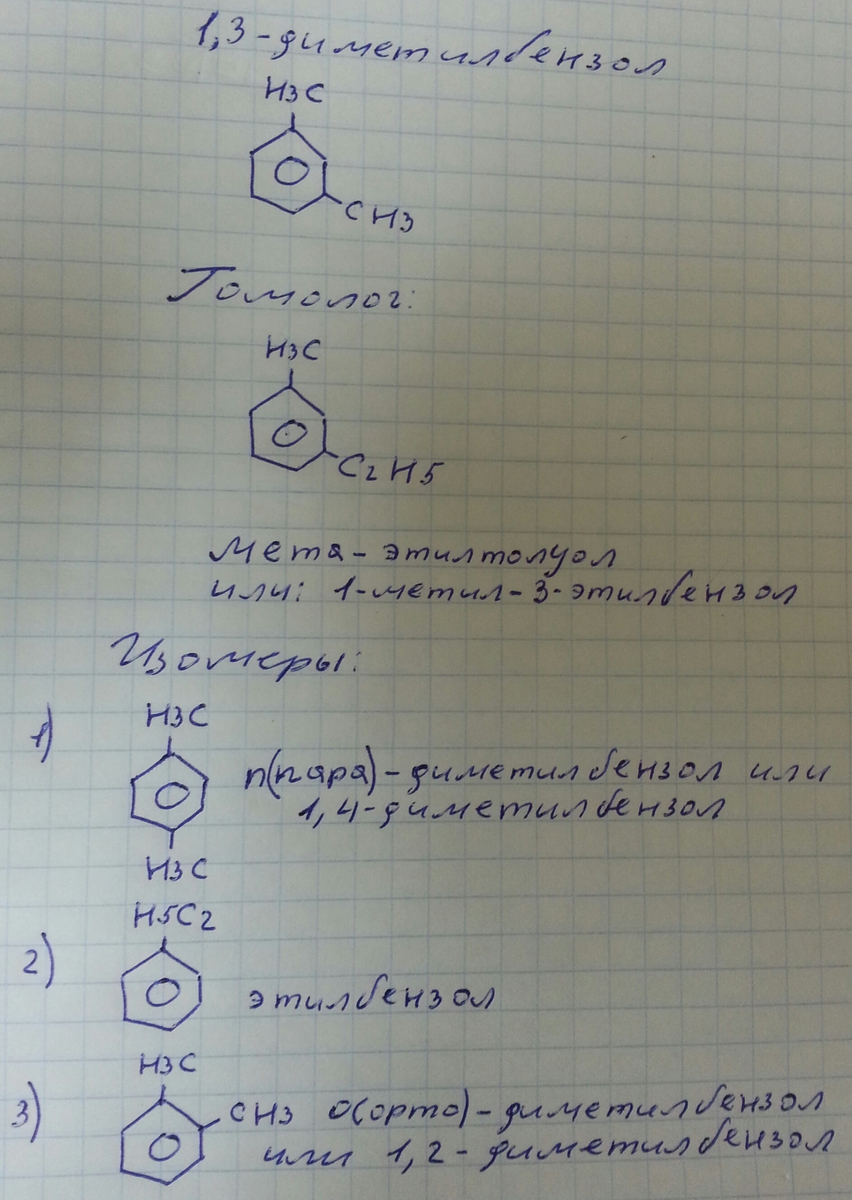 1,3-диметилбензол
H3C
CH3
Гомолог:
H3C
C2H5
мета-этилтолуол
или: 1-метил-3-этилбензол
Изомеры:
1)
H3C
п(пара)-диметилбензол или
1,4-диметилбензол
H3C
H5C2
2)
этилбензол
H3C
3)
CH3 О(орто)-диметилбензол
или 1,2-диметилбензол